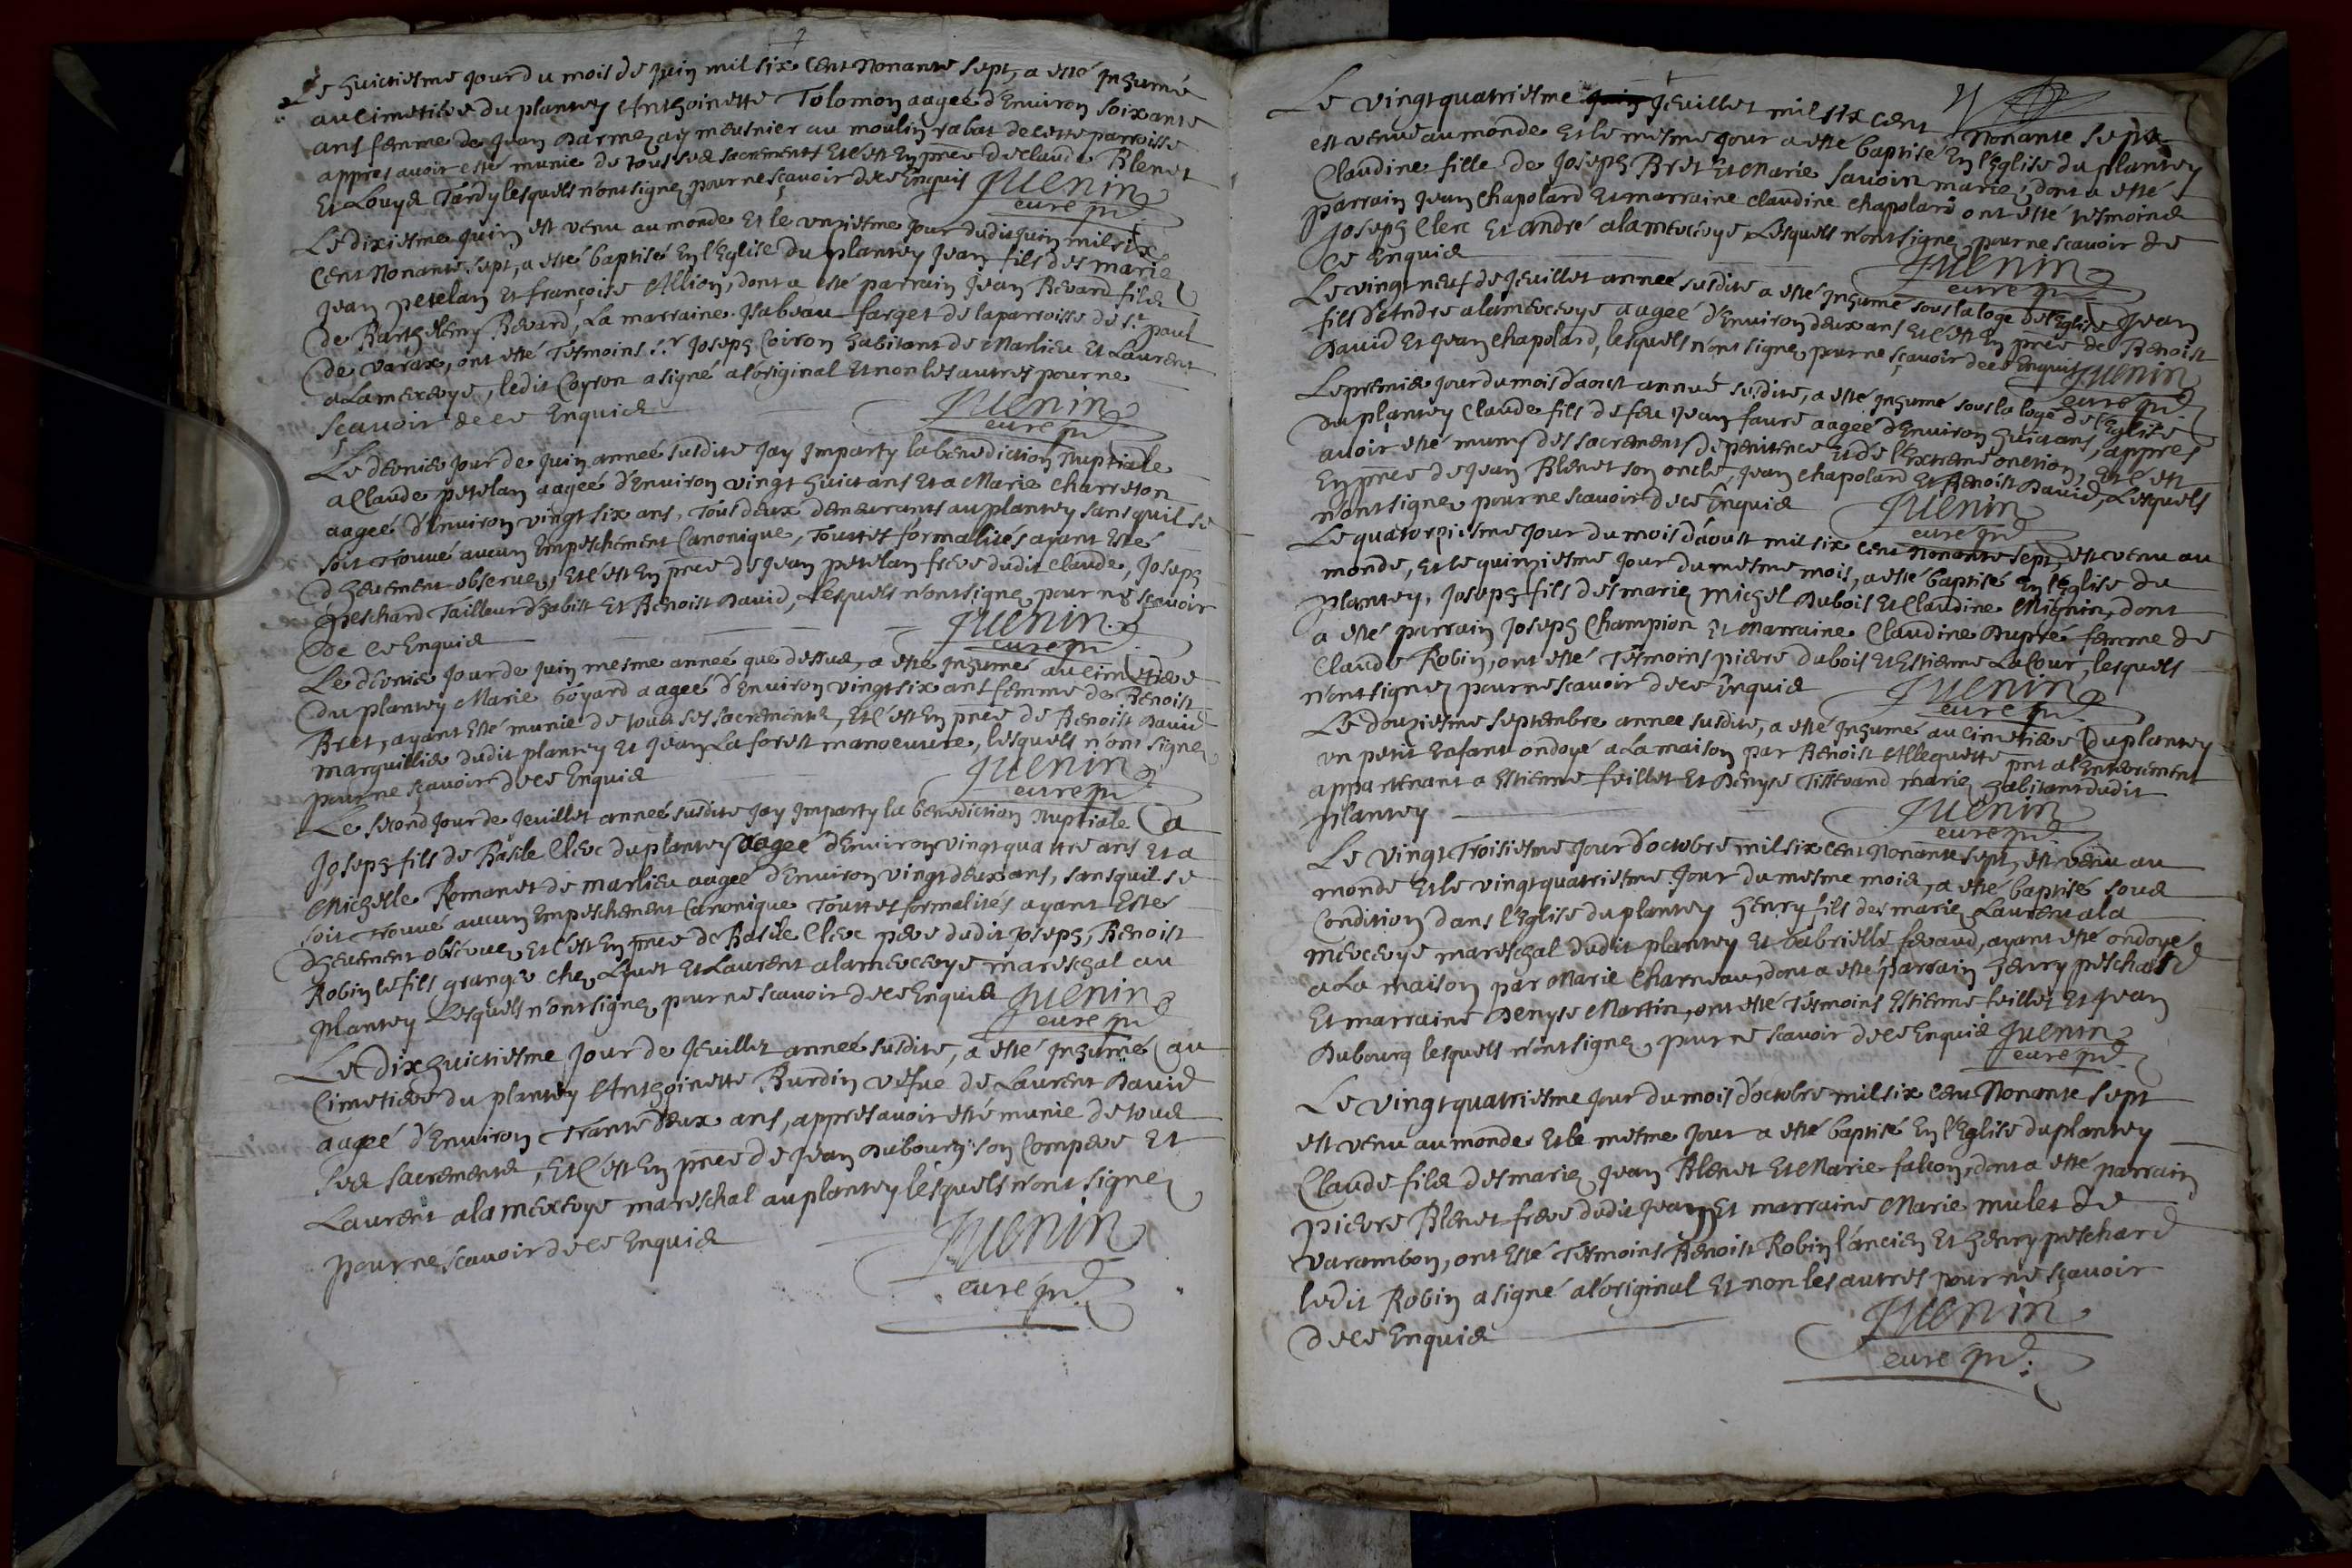 Le huictiesme jour du mois de juin mil six cent nonante sept, a esté inhumé
au cimetiere du plantey Anthoinette Tolomon aageé d'environ soixante
ans femme de Jean meusnier au moulin rabat de cette parroisse
appres avoir esté munie de tous ses sacrements et c'est en pñce de Claude Blenet
et Louys Tardy lesquels n'ont signez pour ne sçavoir de ce enquis Juenin
curé
Le dixiesme juin est venu au monde et le unziesme jour dudit juin mil six
cent nonante sept, a esté baptisé en l'Eglise du plantey Jean fils des mariez
Jean petelan et françoise Allion, dont a esté parrain Jean Revard fils
de Barthelemy Revard, la marraine Isabeau farget de la parroisse de St paul
de varax, ont esté tesmoins Sr Joseph Coiron habitant de Marlieu et Laurent
alamercerye, ledit Coyron a signé a l'original et non les autres pour ne
scavoir de ce enquis Juenin
curé
Le dernier jour de juin anneé susdite jay imparty la benediction nuptiale
a Claude petelan aageé d'environ vingt huict ans et a Marie Charreton
aageé d'environ vingt six ans, tous deux demeurants au plantey sans quil se
soit trouvé aucun empeschement canonique, touttes formalités ayant esté
dheuement observez, et c'est en pñce de Jean petelan frere dudit Claude, Joseph
peschard Tailleur d'habist et Benoist David, Lesquels n'ont signez pour ne scavoir
de ce enquis Juenin
curé
Le dernier jour de juin mesme anneé que dessus, a esté inhumé au cimetiere
du plantey Marie Goyard aageé d'environ vingt six ans femme de Benoist
Bret, ayant esté munie de tous ses sacrements, et c'est en pñce de Benoist David
marguillier dudit plantey et Jean Laforest manoeuvre, lesquels n'ont signez
pour ne sçavoir de ce enquis Juenin
curé
Le second jour de jeuillet anneé susdite jay imparty la benediction nuptiale a
Joseph fils de Basile Clerc du plantey aageé d'environ vingt quattre ans et a
Michelle Romanet de marlieu aageé d'environ vingt deux ans, sans quil se
soit trouvé aucun empeschement canonique touttes formalités ayant estés
dheuement observez, et c'est en pñce de Basile Clerc pere dudit Joseph, Benoist
Robin le fils granger chez Liquet et Laurent alamercerye mareschal au
plantey Lesquels n'ont signez pour ne scavoir de ce enquis Juenin
curé
Le dix huictiesme jour de jeuillet anneé susdite, a esté inhumé au
cimetiere du plantey Anthoinette Burdin vefue de Laurent David
aageé d'environ trante deux ans, appres avoir esté munie de tous
ses sacrements, et c'est en pñce de Jean Dubourg son compere et
Laurent alamercerye mareschal au plantey lesquels n'ont signez
pour ne scavoir de ce enquis Juenin
curé
Le vingt quatriesme jeuillet mil six cent nonante sept
est venue au monde et le mesme jour a esté baptisé en l'Eglise du plantey
Claudine fille de Joseph Bret et Marie Savoin mariez, dont a esté
parrain Jean Chapolard et marraine Claudine Chapolard ont esté tesmoins
Joseph Clerc et André alamercerye Lesquels n'ont signez pour ne scavoir de
ce enquis Juenin
curé
Le vingt neuf de jeuillet anneé susdite a esté inhumé sous la loge de l'Eglise Jean
fils d'André alamercerye aageé d'environ deux ans et c'est en pñce de Benoist
David et Jean Chapolard, lesquels n'ont signez pour ne sçavoir de ce enquis Juenin
curé
Le premier jour du mois d'aoust anneé susdite, a esté inhumé sous la loge de l'Eglise
du plantey Claude fils de feu Jean faure aageé d'environ huict ans, appres
avoir esté muny des sacrements de penitence et de l'extreme onction, et c'est
en pñce de Jean Blenet son oncle, Jean Chapolard et Benoist David, Lesquels
n'ont signez pour ne scavoir de ce enquis Juenin
curé
Le quatorziesme jour du mois d'aoust mil six cent nonante sept, est venu au
monde, et le quinziesme jour du mesme mois, a esté baptisé en l'Eglise du
plantey, Joseph fils des mariez Michel Dubois et Claudine Mignin, dont
a esté parrain Joseph Champion et Marraine Claudine Dupré femme de
Claude Robin, ont esté tesmoins pierre dubois et Estienne Lacour, lesquels
n'ont signez pour ne scavoir de ce enquis Juenin
curé
Le douziesme septembre annee susdite, a esté inhumé au cimetiere du plantey
un petit enfant ondoyé a la maison par Benoist Allequette pnt a l'enterement
appartenant a Estienne feillet et Denyse Tisserand mariez habitant dudit
plantey Juenin
curé
Le vingt troisiesme jour d'octobre mil six cent nonante sept, est venu au
monde et le vingt quatriesme jour du mesme mois, a esté baptisé sous
condition dans l'Eglise du plantey Henry fils des mariez Laurent ala
mercerye mareschal dudit plantey et Gabrielle feraud, ayant esté ondoyé
a la maison par Marie Charneau, dont a esté parrain Henry peschard
et marraine Denyse Martin, ont esté tesmoins Estienne feillet et Jean
Dubourg lesquels n'ont signez pour ne scavoir de ce enquis Juenin
curé
Le vingt quatriesme jour du mois d'octobre mil six cent nonante sept
est venu au monde et le mesme jour a esté baptisé en l'Eglise du plantey
Claude fils des mariez Jean Blenet et Marie falcon, dont a esté parrain
pierre Blenet frere dudit Jean et marraine Marie mulet de
varambon, ont esté tesmoins Benoist Robin l'ancien et Henry peschard
ledit Robin a signé a l'original et non les autres pour ne sçavoir
de ce enquis Juenin
curé